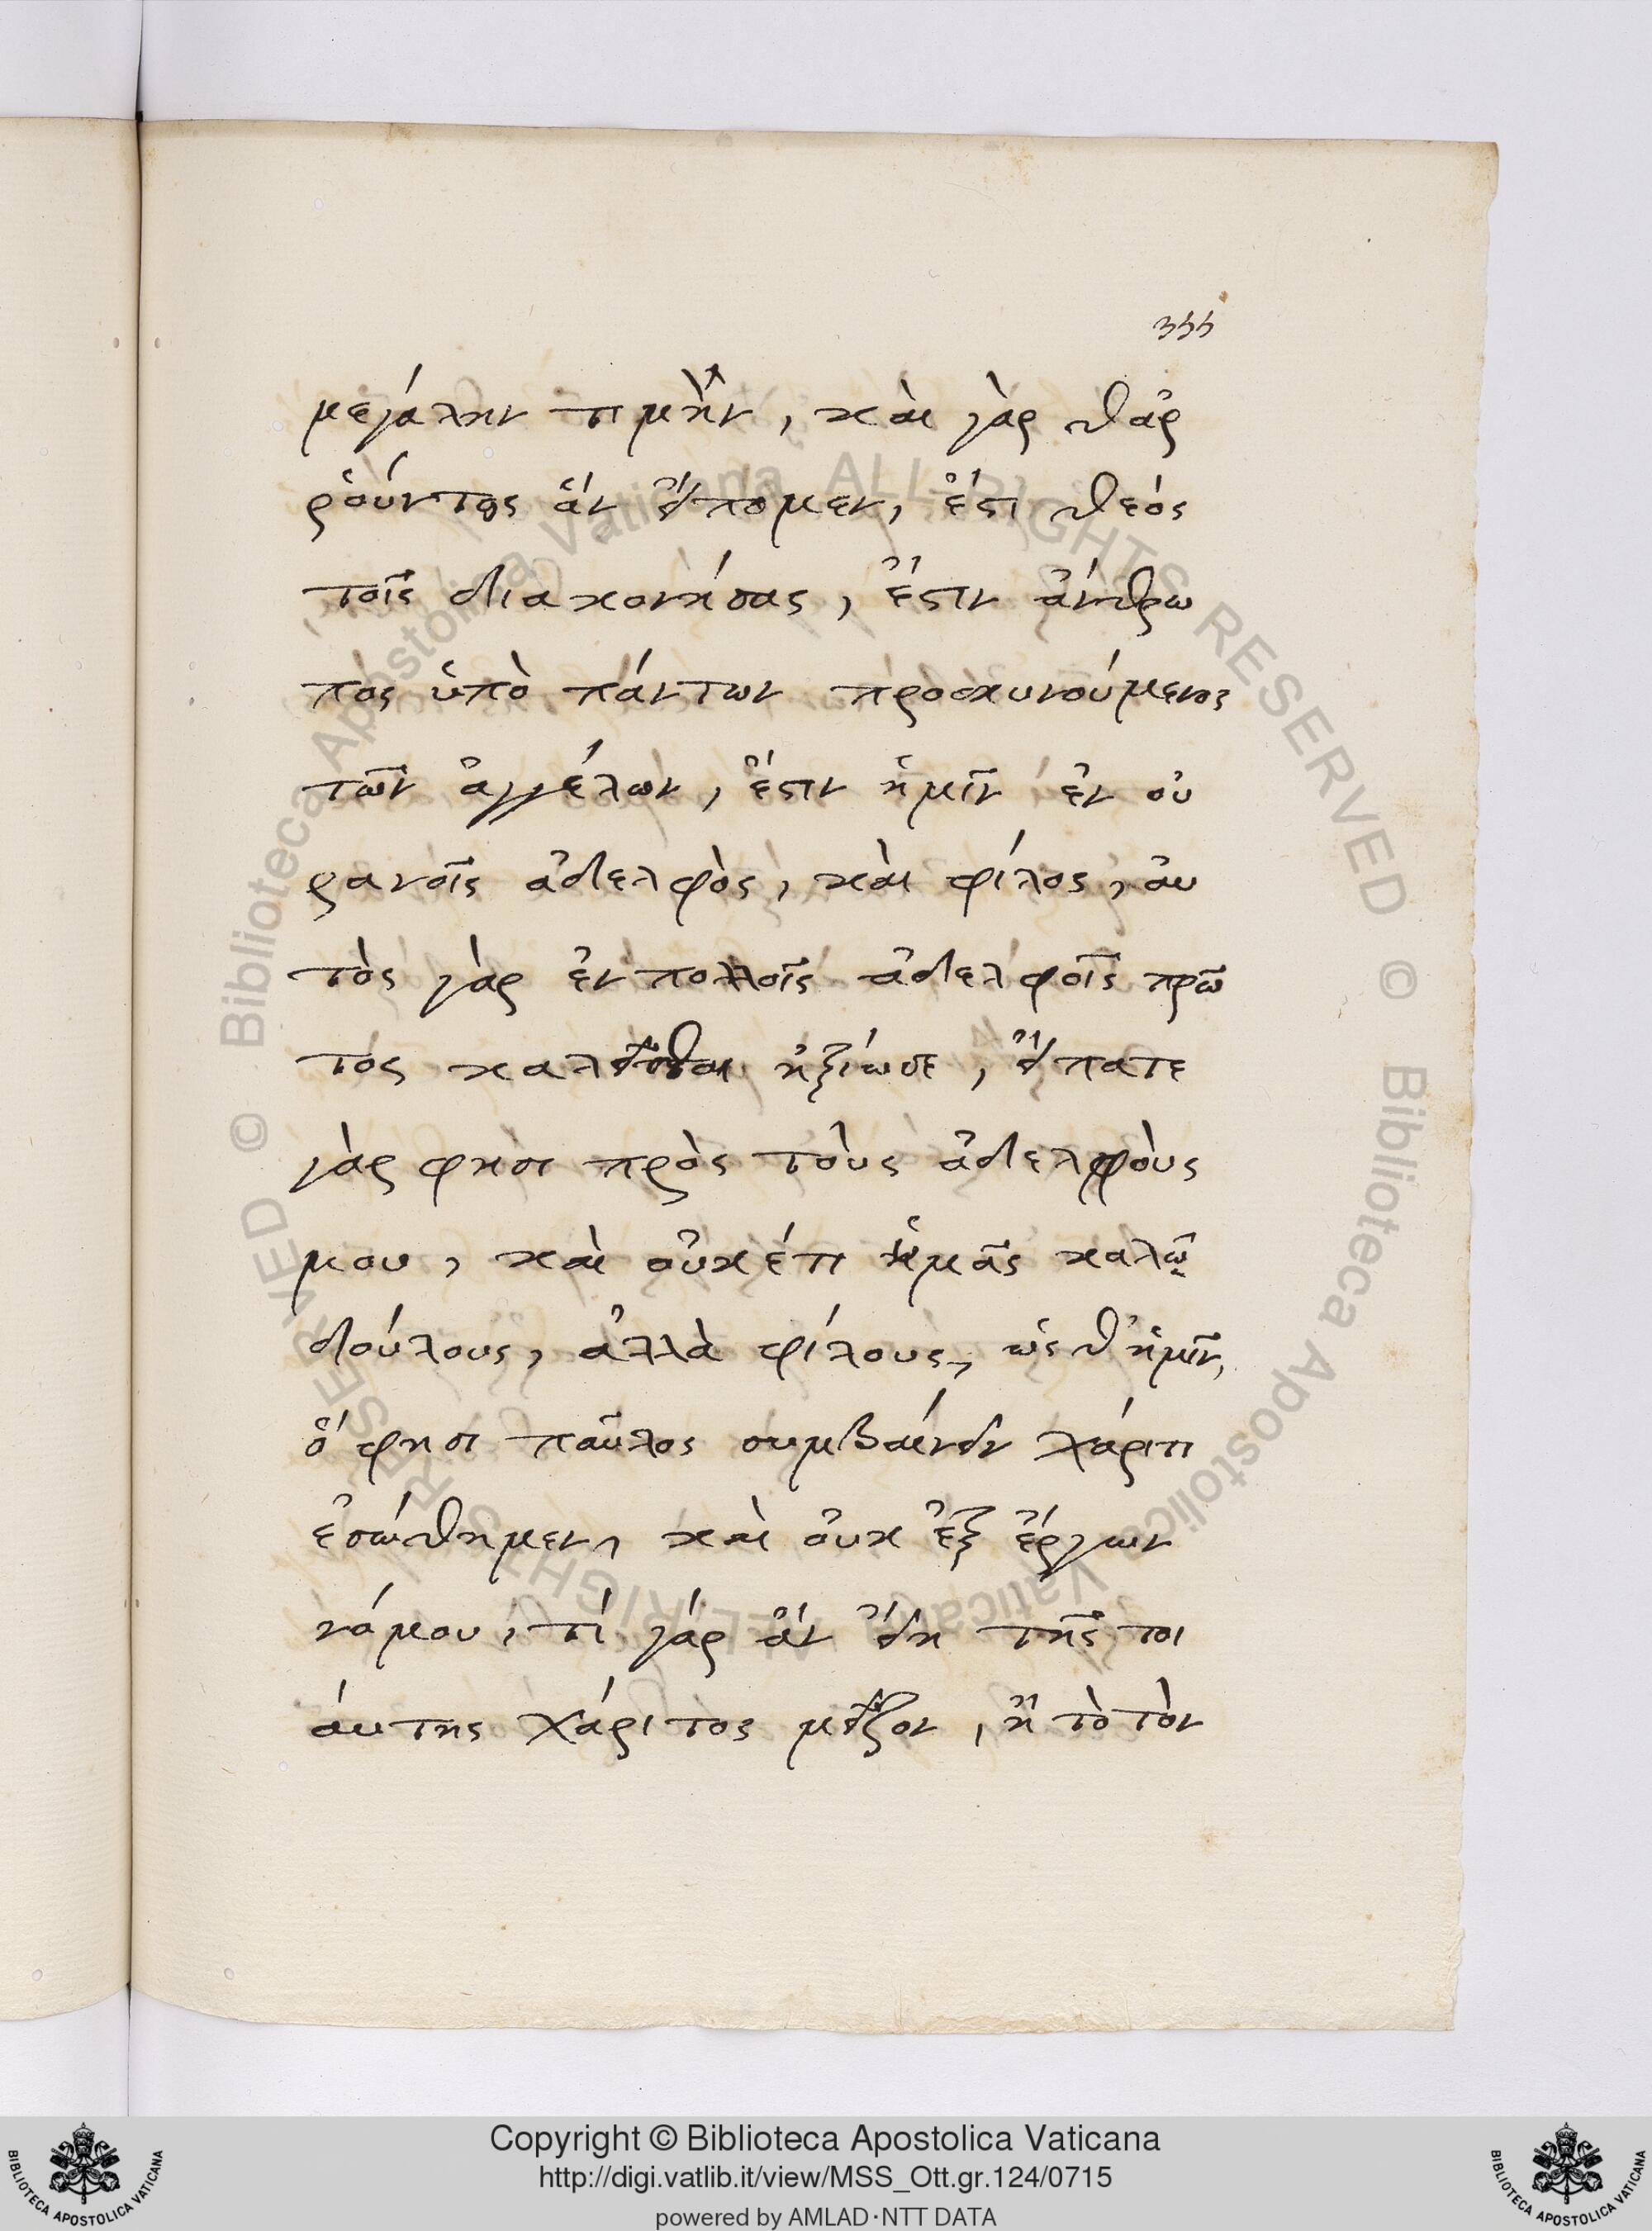 355
μεγάλην τιμὴν, καὶ γὰρ θαρ
ροῦντες ἂν εἴπομεν, ἔστι θεός
τοῖς διακονήσας, ἔστιν ἄνθρω
πος ὑπὸ πάντων προσκυνούμενος
τῶν ἀγγέλων, ἔστιν ἡμῖν ἐν οὐ
ρανοῖς ἀδελφὸς, καὶ φίλος, αὐ
τὸς γὰρ ἐν πολλοῖς ἀδελφοῖς πρῶ
τος καλεῖσθαι ἠξίωσε, εἴπατε
γὰρ φησι πρὸς τοὺς ἀδελφοὺς
μου, καὶ οὐκέτι ὑμᾶς καλῶ
δούλους, ἀλλὰ φίλους, ὡς θ' ἡμῖν,
ὅ φησι παῦλος συμβαίνειν χάριτι
ἐσώθημεν, καὶ οὐκ ἐξ ἔργων
νόμου, τί γάρ ἂν εἴη τῆς τοι
άυτης χάριτος μεῖζον, ἢ τὸ τὸν
© Biblioteca Apostolica Vaticana ALL RIGHTS RESERVED © Biblioteca Apostolica Vaticana ALL RIGHTS RESERVED
Copyright © Biblioteca Apostolica Vaticana
http://digi.vatlib.it/view/MSS_Ott.gr.124/0715
powered by AMLAD·NTT DATA
BIBLIOTECA APOSTOLICA VATICANA
BIBLIOTECA APOSTOLICA VATICANA